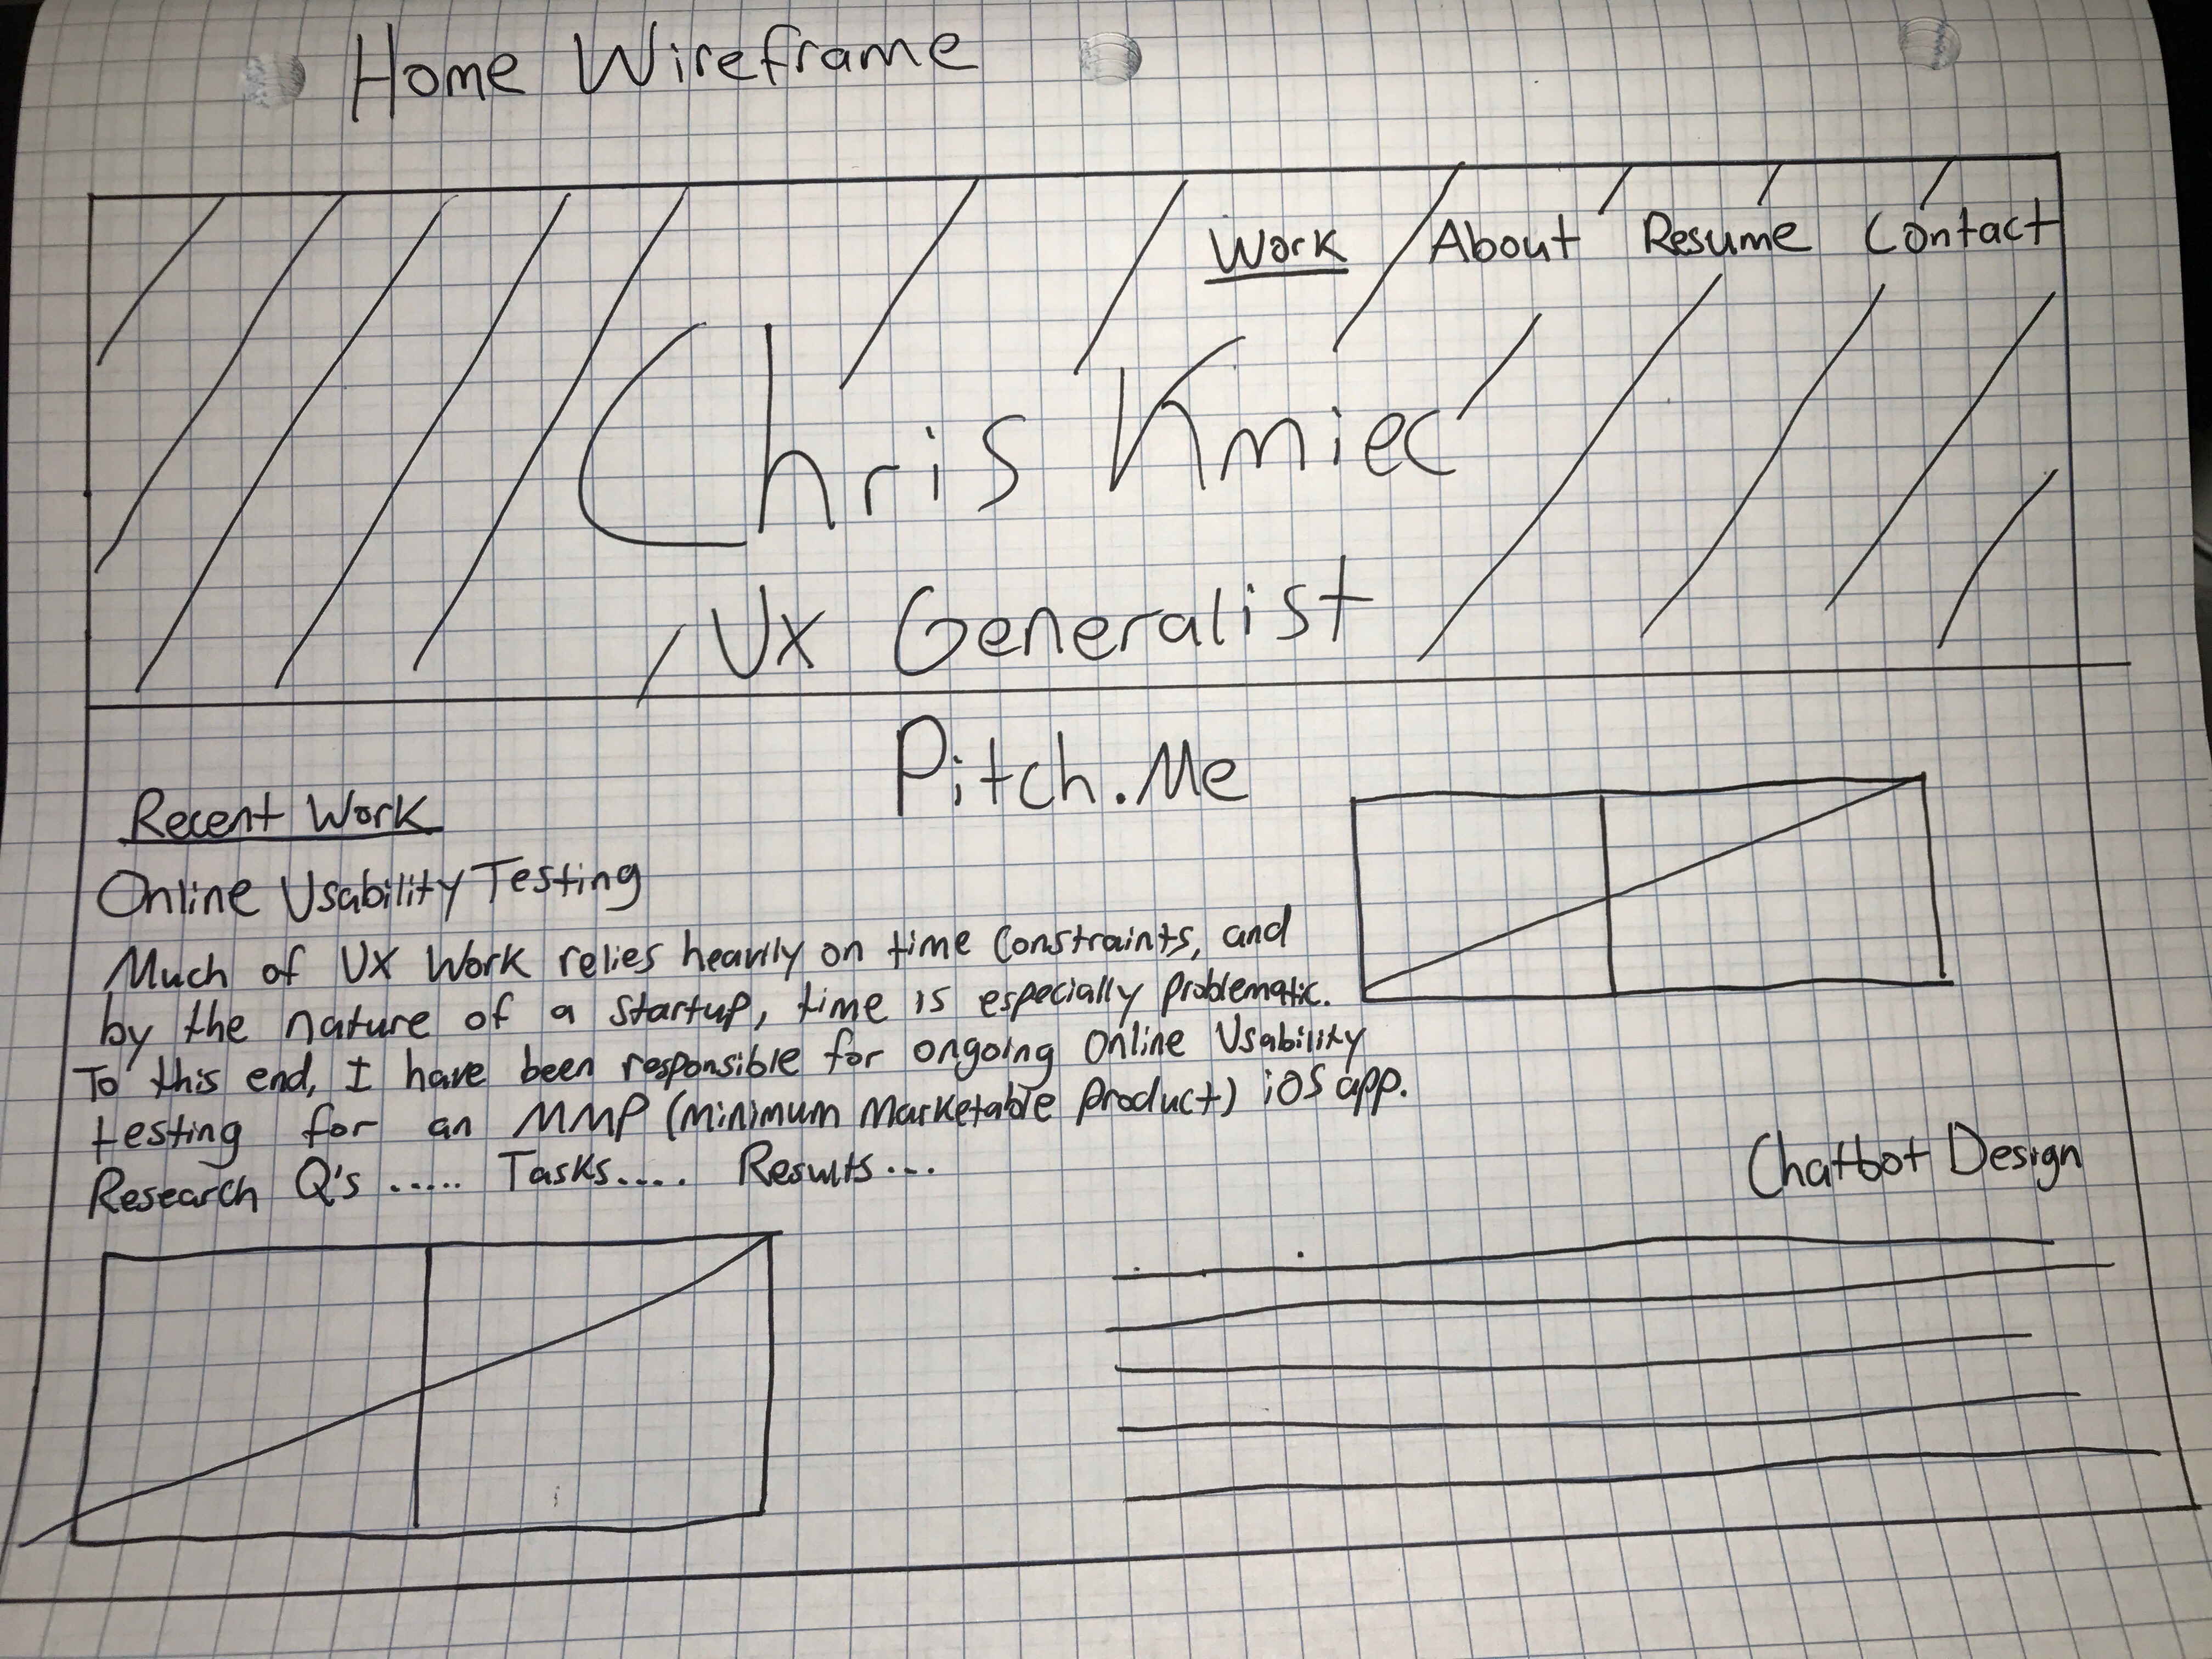 Home Wireframe
Work About Resume Contact
Chris Kmiec
UX Generalist
Pitch.Me
Recent Work
Online Usability Testing
Much of UX Work relies heavily on time constraints, and
by the nature of a startup, time is especially problematic.
To this end, I have been responsible for ongoing online Usability
testing for an MMP (minimum marketable product) iOS app.
Research Q's ..... Tasks.... Results...
Chatbot Design